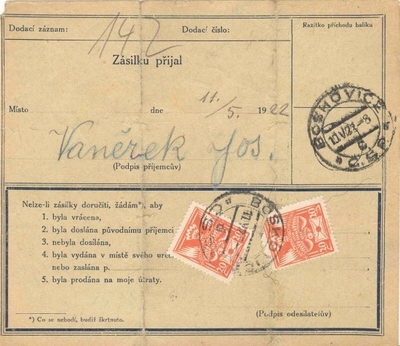 Dodací záznam:
142
Dodací číslo:
Razítko příchodu balíka
Zásilku přijal
Místo dne 11./5. 1922
Vaněrek Jos.
(Podpis příjemcův)
BOSKOVICE
Nelze-li zásilky doručiti, žádám*), aby
1. byla vrácena,
2. byla doslána původnímu příjemci
3. nebyla dosílána,
4. byla vydána v místě svého urče
nebo zaslána p.
5. byla prodána na moje útraty.
*) Co se nehodí, budiž škrtnuto.
(Podpis odesilatelův)